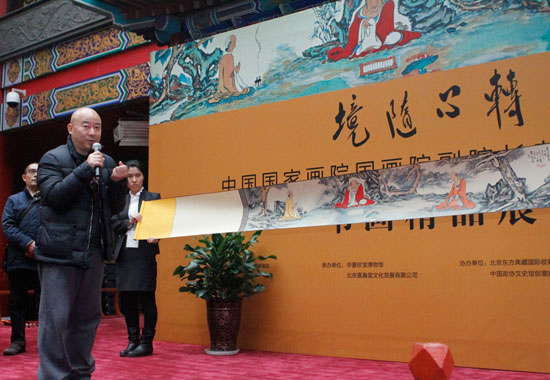 境隨心轉
中国国家画院国画院副院长
书画精品展
承办单位：华夏珍宝博物馆
文化发展有限公司
协办单位：北京东方典藏国际收藏
中国政协文史馆创意